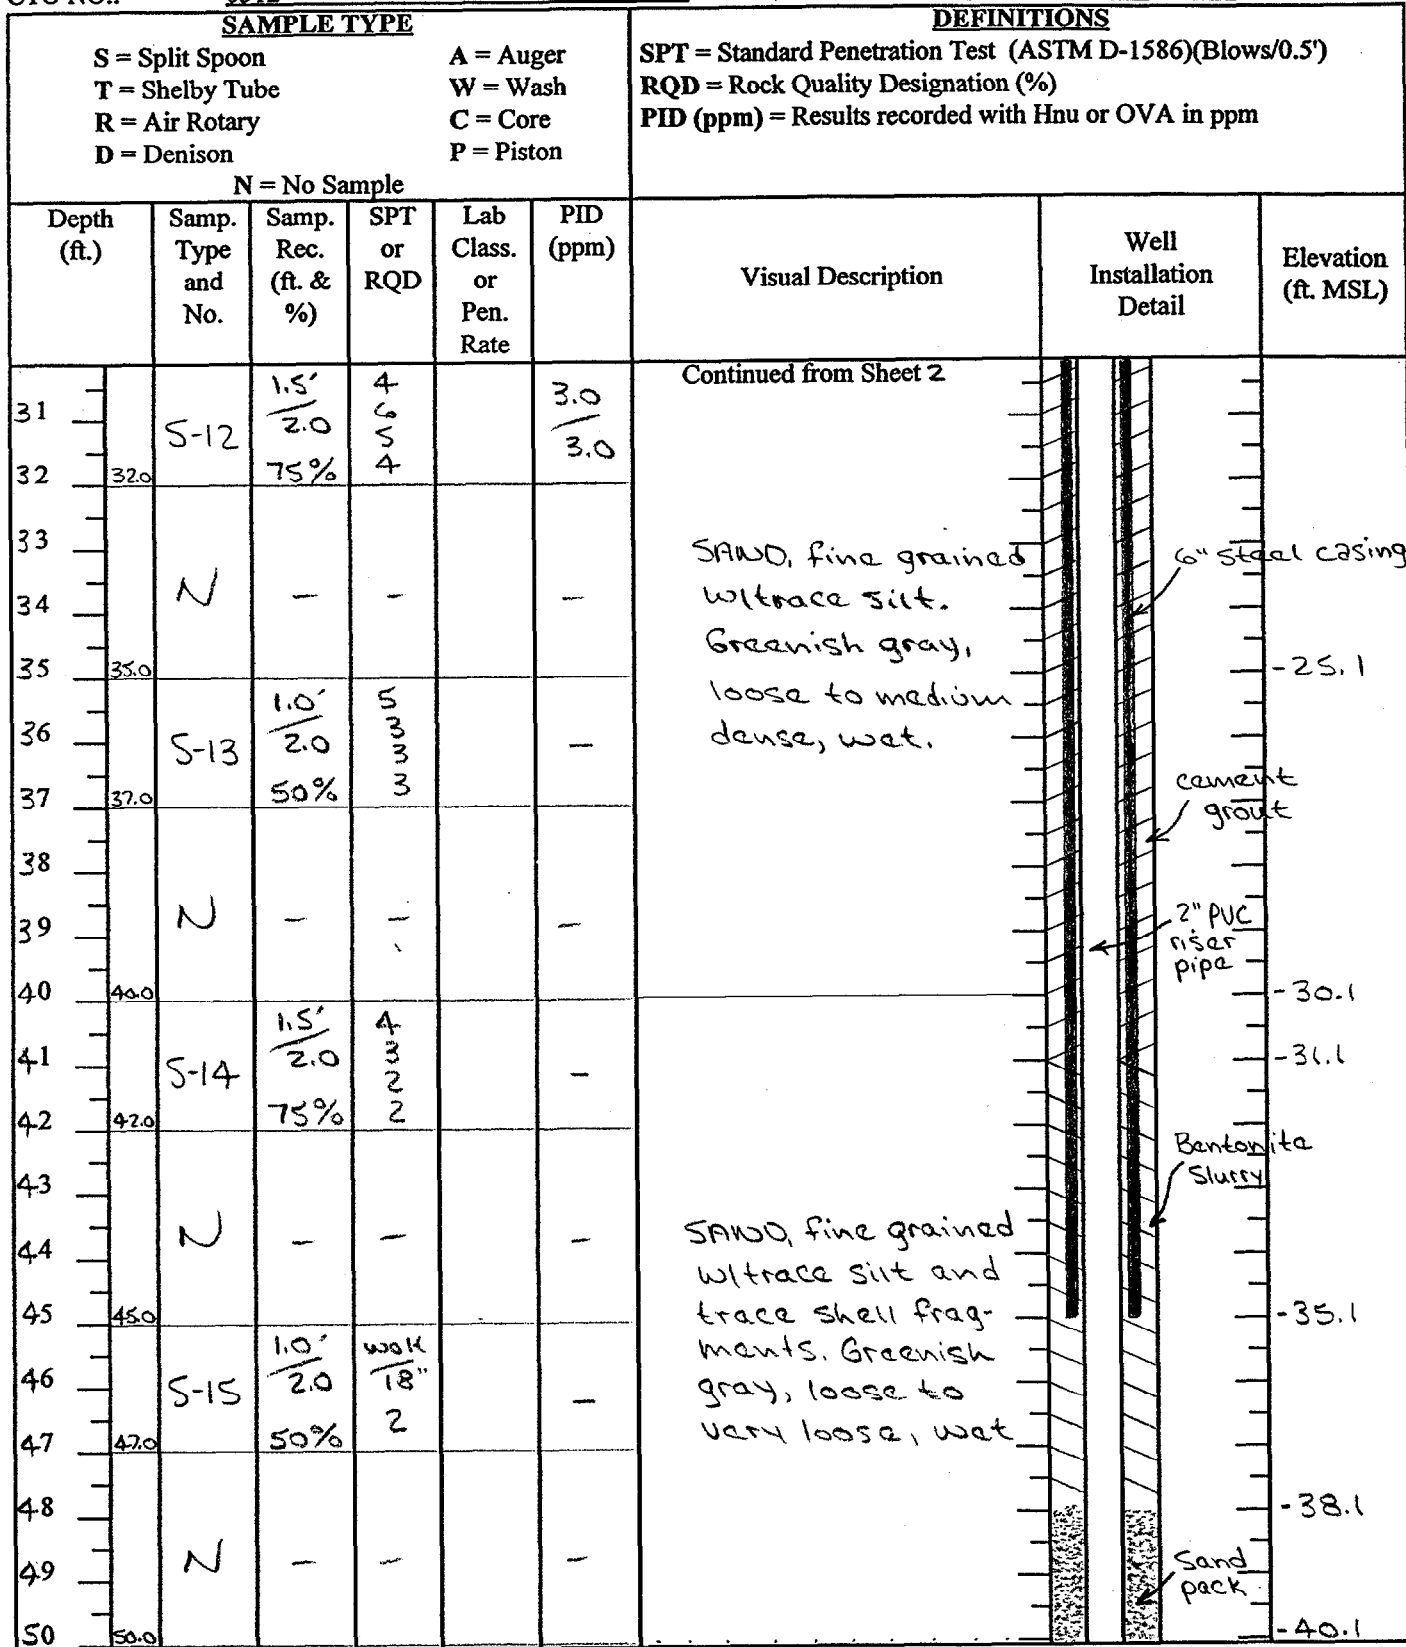 SAMPLE TYPE
S = Split Spoon A = Auger
T = Shelby Tube W = Wash
R = Air Rotary C = Core
D = Denison P = Piston
N = No Sample
DEFINITIONS
SPT = Standard Penetration Test (ASTM D-1586)(Blows/0.5')
RQD = Rock Quality Designation (%)
PID (ppm) = Results recorded with Hnu or OVA in ppm
Depth
(ft.)
Samp.
Type
and
No.
Samp.
Rec.
(ft. &
%)
SPT
or
RQD
Lab
Class.
or
Pen.
Rate
PID
(ppm)
Visual Description
Well
Installation
Detail
Elevation
(ft. MSL)
Continued from Sheet 2
31
32 32.0
S-12
1.5'
2.0
75%
4
6
5
4
3.0
3.0
33
34
35 35.0
N - - -
SAND, fine grained
w/trace silt.
Greenish gray,
loose to medium
dense, wet.
6" steel casing
-25.1
36
37 37.0
S-13
1.0'
2.0
50%
5
3
3
3
-
cement
grout
38
39
40 40.0
N - - -
2" PVC
riser
pipe
-30.1
41
42 42.0
S-14
1.5'
2.0
75%
4
3
2
2
-
-31.1
Bentonite
Slurry
43
44
45 45.0
N - - -
SAND, fine grained
w/trace silt and
trace shell frag-
ments. Greenish
gray, loose to
very loose, wet
-35.1
46
47 47.0
S-15
1.0'
2.0
50%
WOH
18"
2
-
48
49
50 50.0
N - - -
-38.1
Sand
pack
-40.1